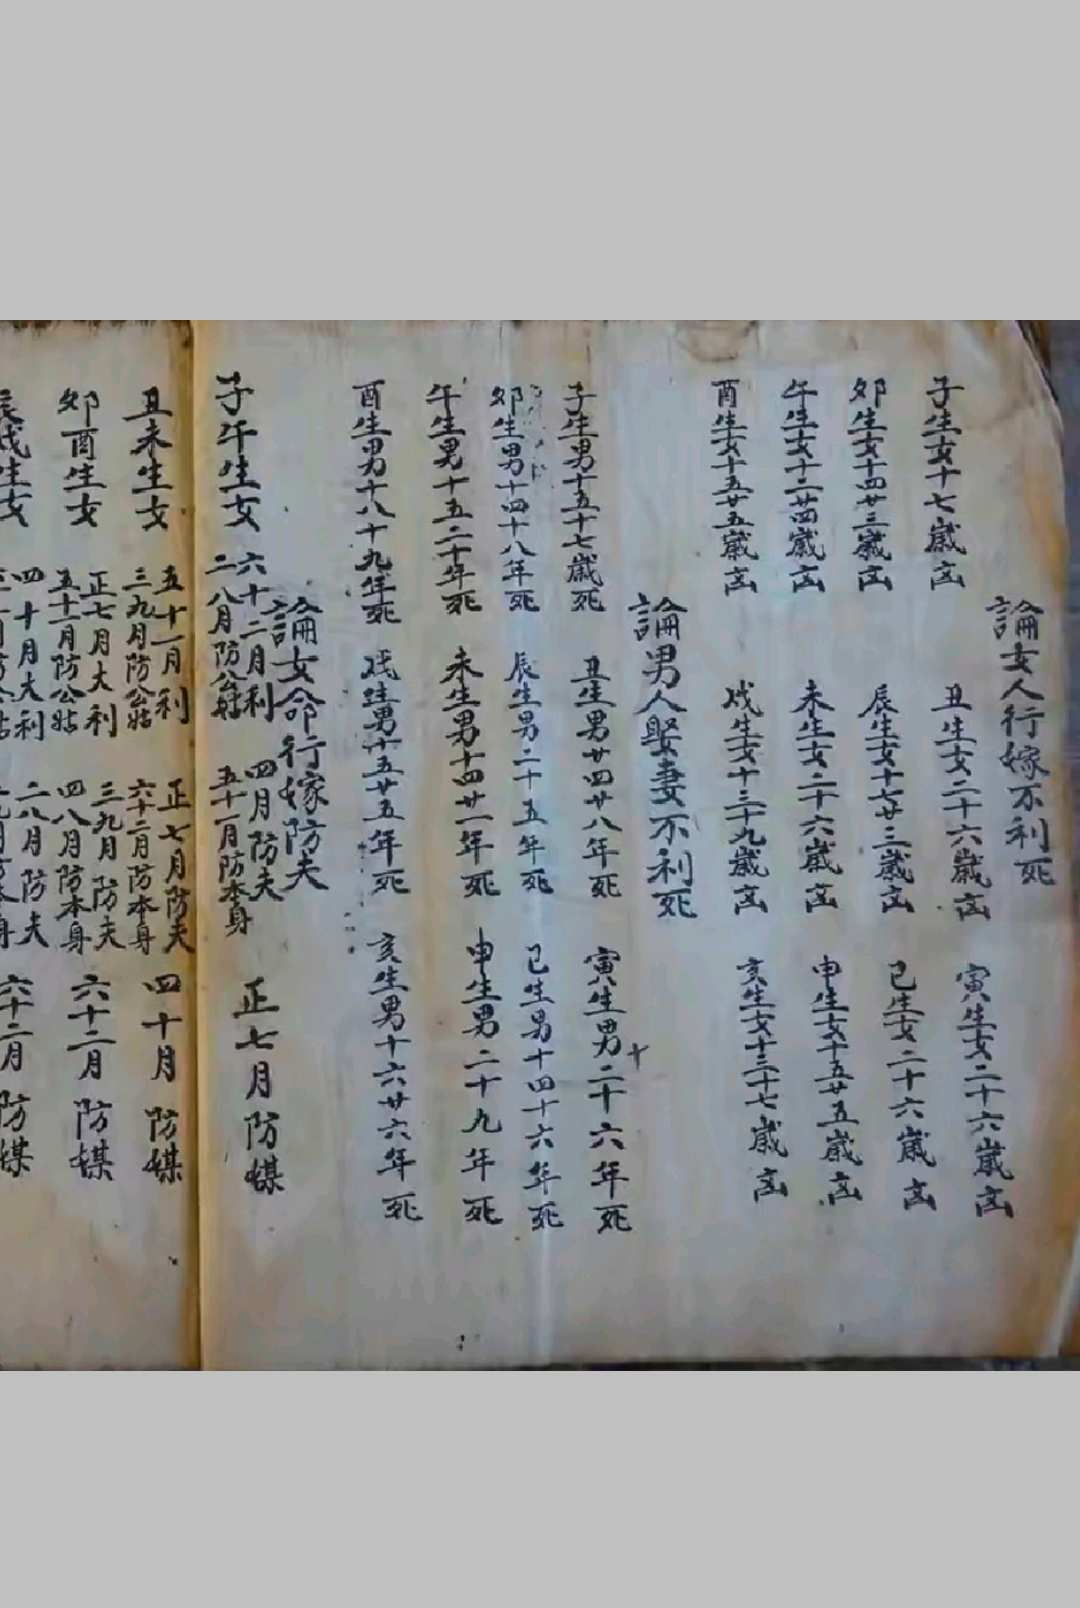 論女人行嫁不利死
子生女十七歲凶 丑生女二十六歲凶 寅生女二十六歲凶
卯生女十四廿三歲凶 辰生女十七廿三歲凶 巳生女二十六歲凶
午生女十二廿四歲凶 未生女二十六歲凶 申生女十五廿五歲凶
酉生女十五廿五歲凶 戌生女十三十九歲凶 亥生女十三十七歲凶
論男人娶妻不利死
子生男十五十七歲死 丑生男廿四廿八年死 寅生男二十六年死
卯生男十四十八年死 辰生男二十五年死 巳生男十四十六年死
午生男十五二十年死 未生男十四廿一年死 申生男二十九年死
酉生男十八十九年死 戌生男十五廿五年死 亥生男十六廿六年死
論女命行嫁防夫
子午生女 六十二月利 二八月防公姑 四月防夫 五十一月防本身 正七月防媒
丑未生女 五十一月利 三九月防公姑 正七月防夫 六十二月防本身 四十月防媒
卯酉生女 正七月大利 五十一月防公姑 三九月防夫 四八月防本身 六十二月防媒
辰戌生女 四十月大利 二八月防夫 六十二月防媒